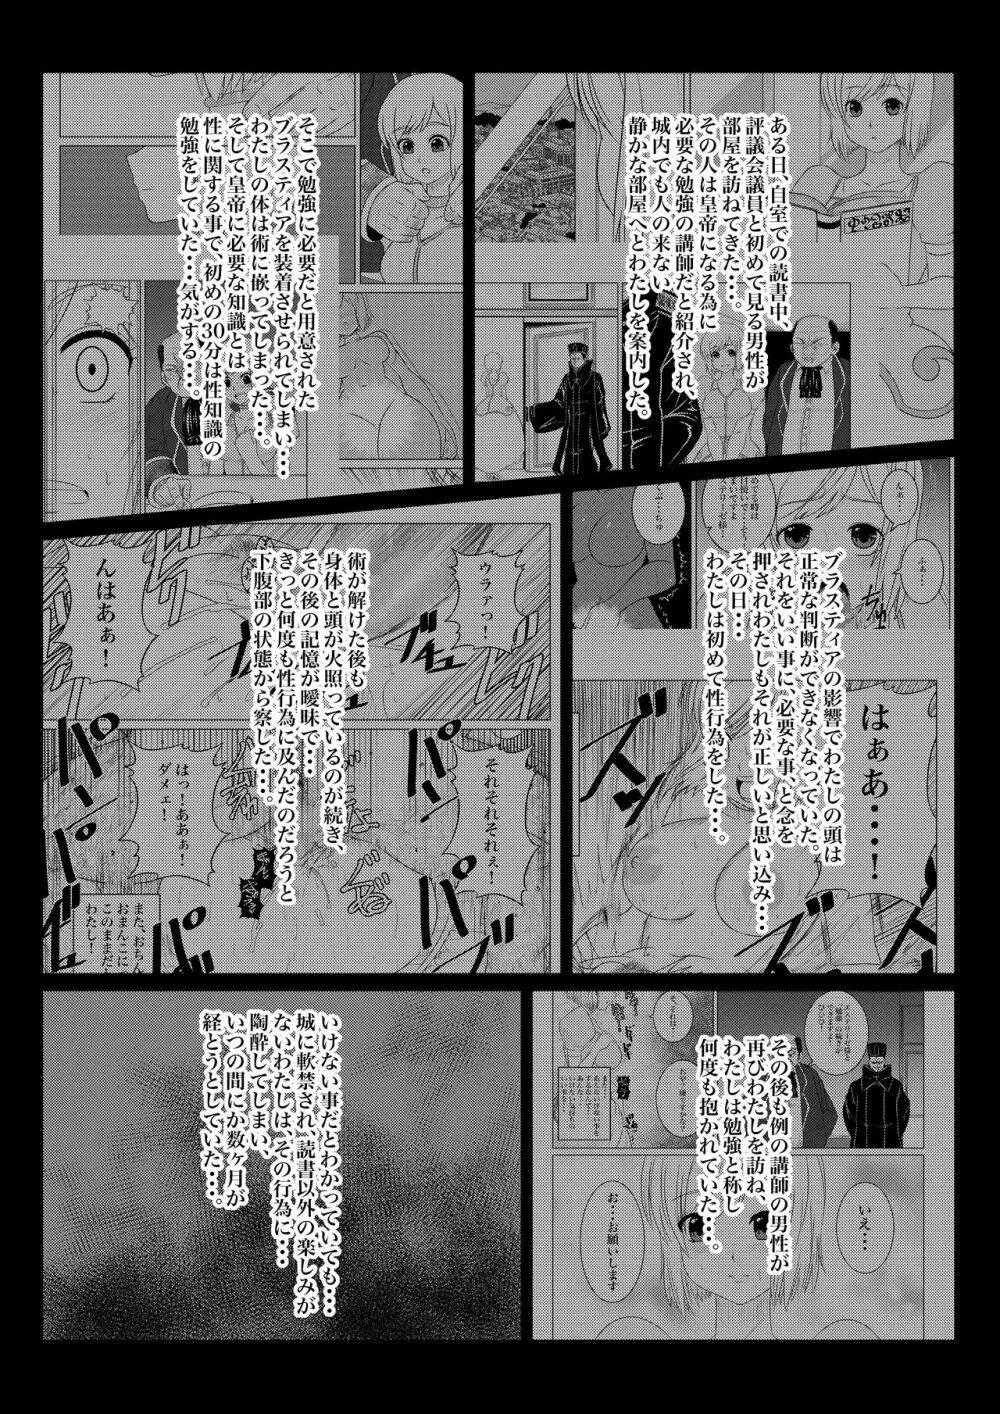 ある日、自室での読書中、
評議会議員と初めて見る男性が
部屋を訪ねてきた・・・。
その人は皇帝になる為に
必要な勉強の講師だと紹介され、
城内でも人の来ない
静かな部屋へとわたしを案内した。
そこで勉強に必要だと用意された
ブラスティアを装着させられてしまい・・・
わたしの体は術に嵌ってしまった・・・。
そして皇帝に必要な知識とは
性に関する事で、初めの30分は性知識の
勉強をしていた・・・気がする・・・。
んぁ・・・
ふぁ・・・
ブラスティアの影響でわたしの頭は
正常な判断ができなくなっていた。
それをいい事に必要な事、と念を
押されわたしもそれが正しいと思い込み・・・
その日・・・
わたしは初めて性行為をした・・・。
はぁあ・・・・！
ウラァっ！
んはあぁ！
術が解けた後も
身体と頭が火照っているのが続き、
その後の記憶が曖昧で・・・
きっと何度も性行為に及んだのだろうと
下腹部の状態から察した・・・。
それそれそれぇ！
はっ！ああぁ！
ダメェ！
パン
パン
また、おちん
おまんこに
このままだ
わたし！
その後も例の講師の男性が
再びわたしを訪ね、
わたしは勉強と称し
何度も抱かれていた・・・。
いえ・・・
お・・・お願いします
いけない事だとわかっていても・・・
城に軟禁され、読書以外の楽しみが
ないわたしは、その行為に・・・
陶酔してしまい、
いつの間にか数ヶ月が
経とうとしていた・・・。